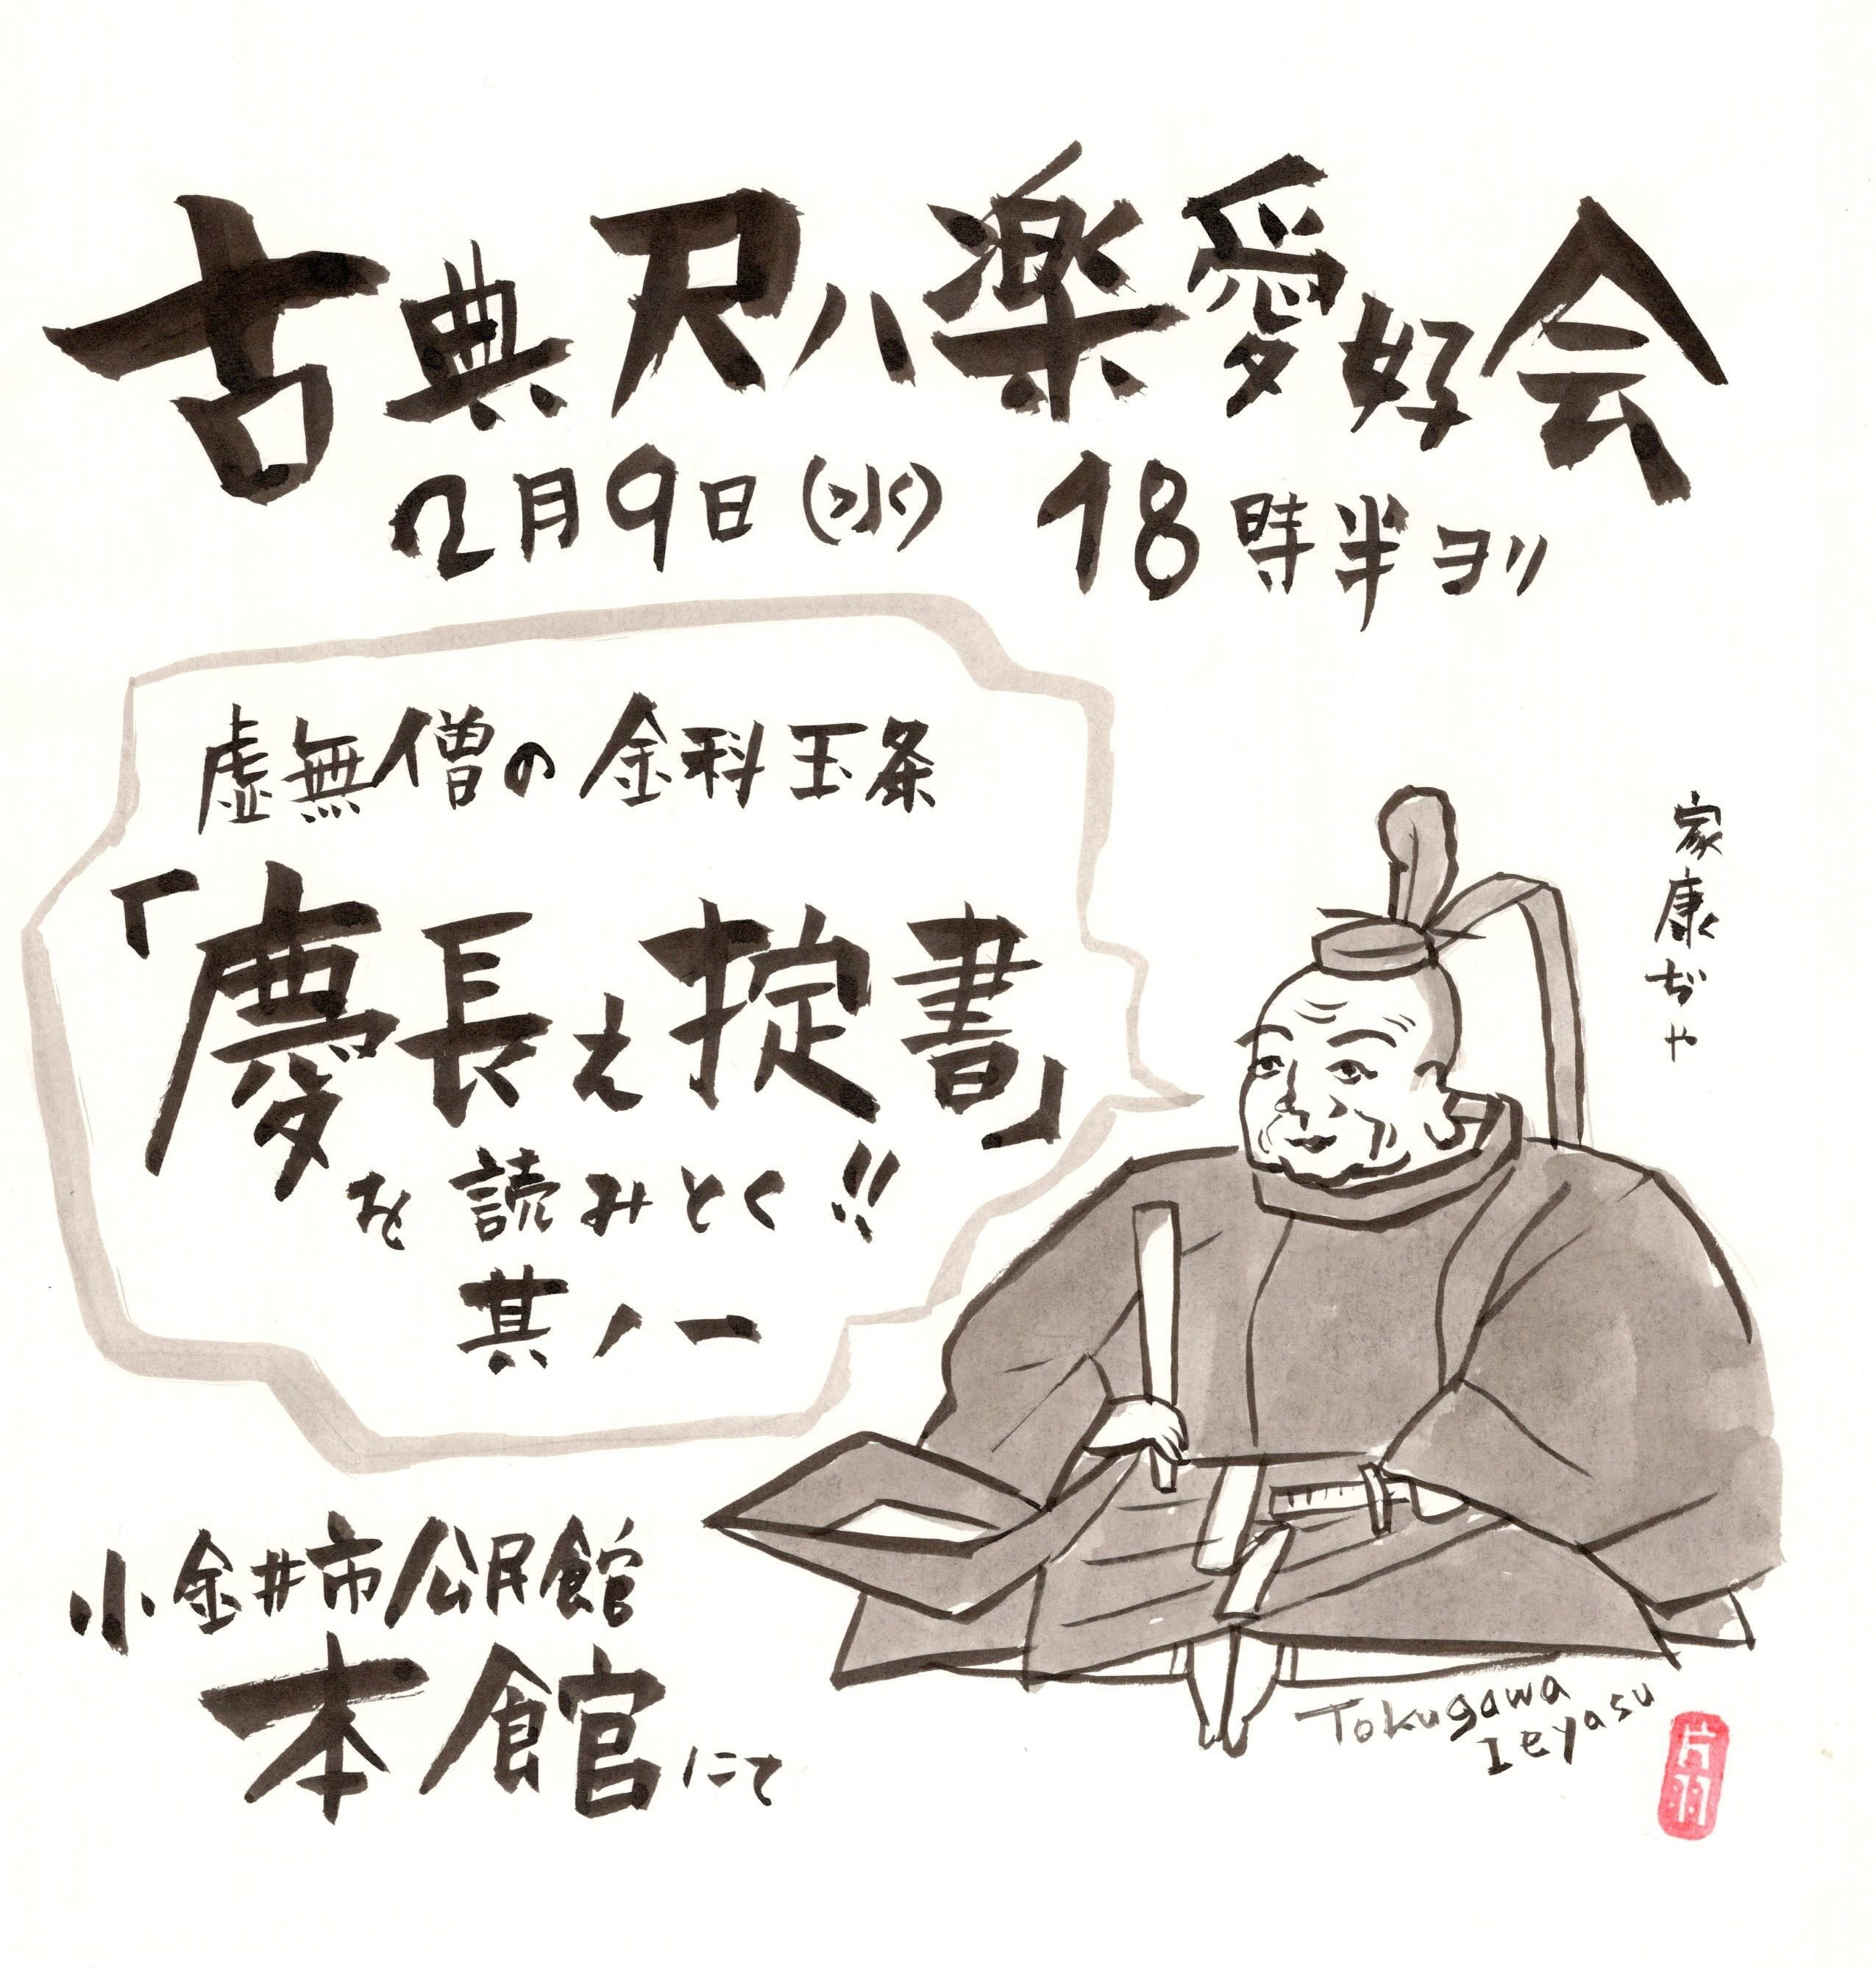 古典尺ハ楽愛好会
2月9日(水) 18時半ヨリ
虚無僧の金科玉条
「慶長之掟書」
を読みとく!!
其ノ一
家康ぢゃ
小金井市公民館
本館にて
Tokugawa
Ieyasu
片羽